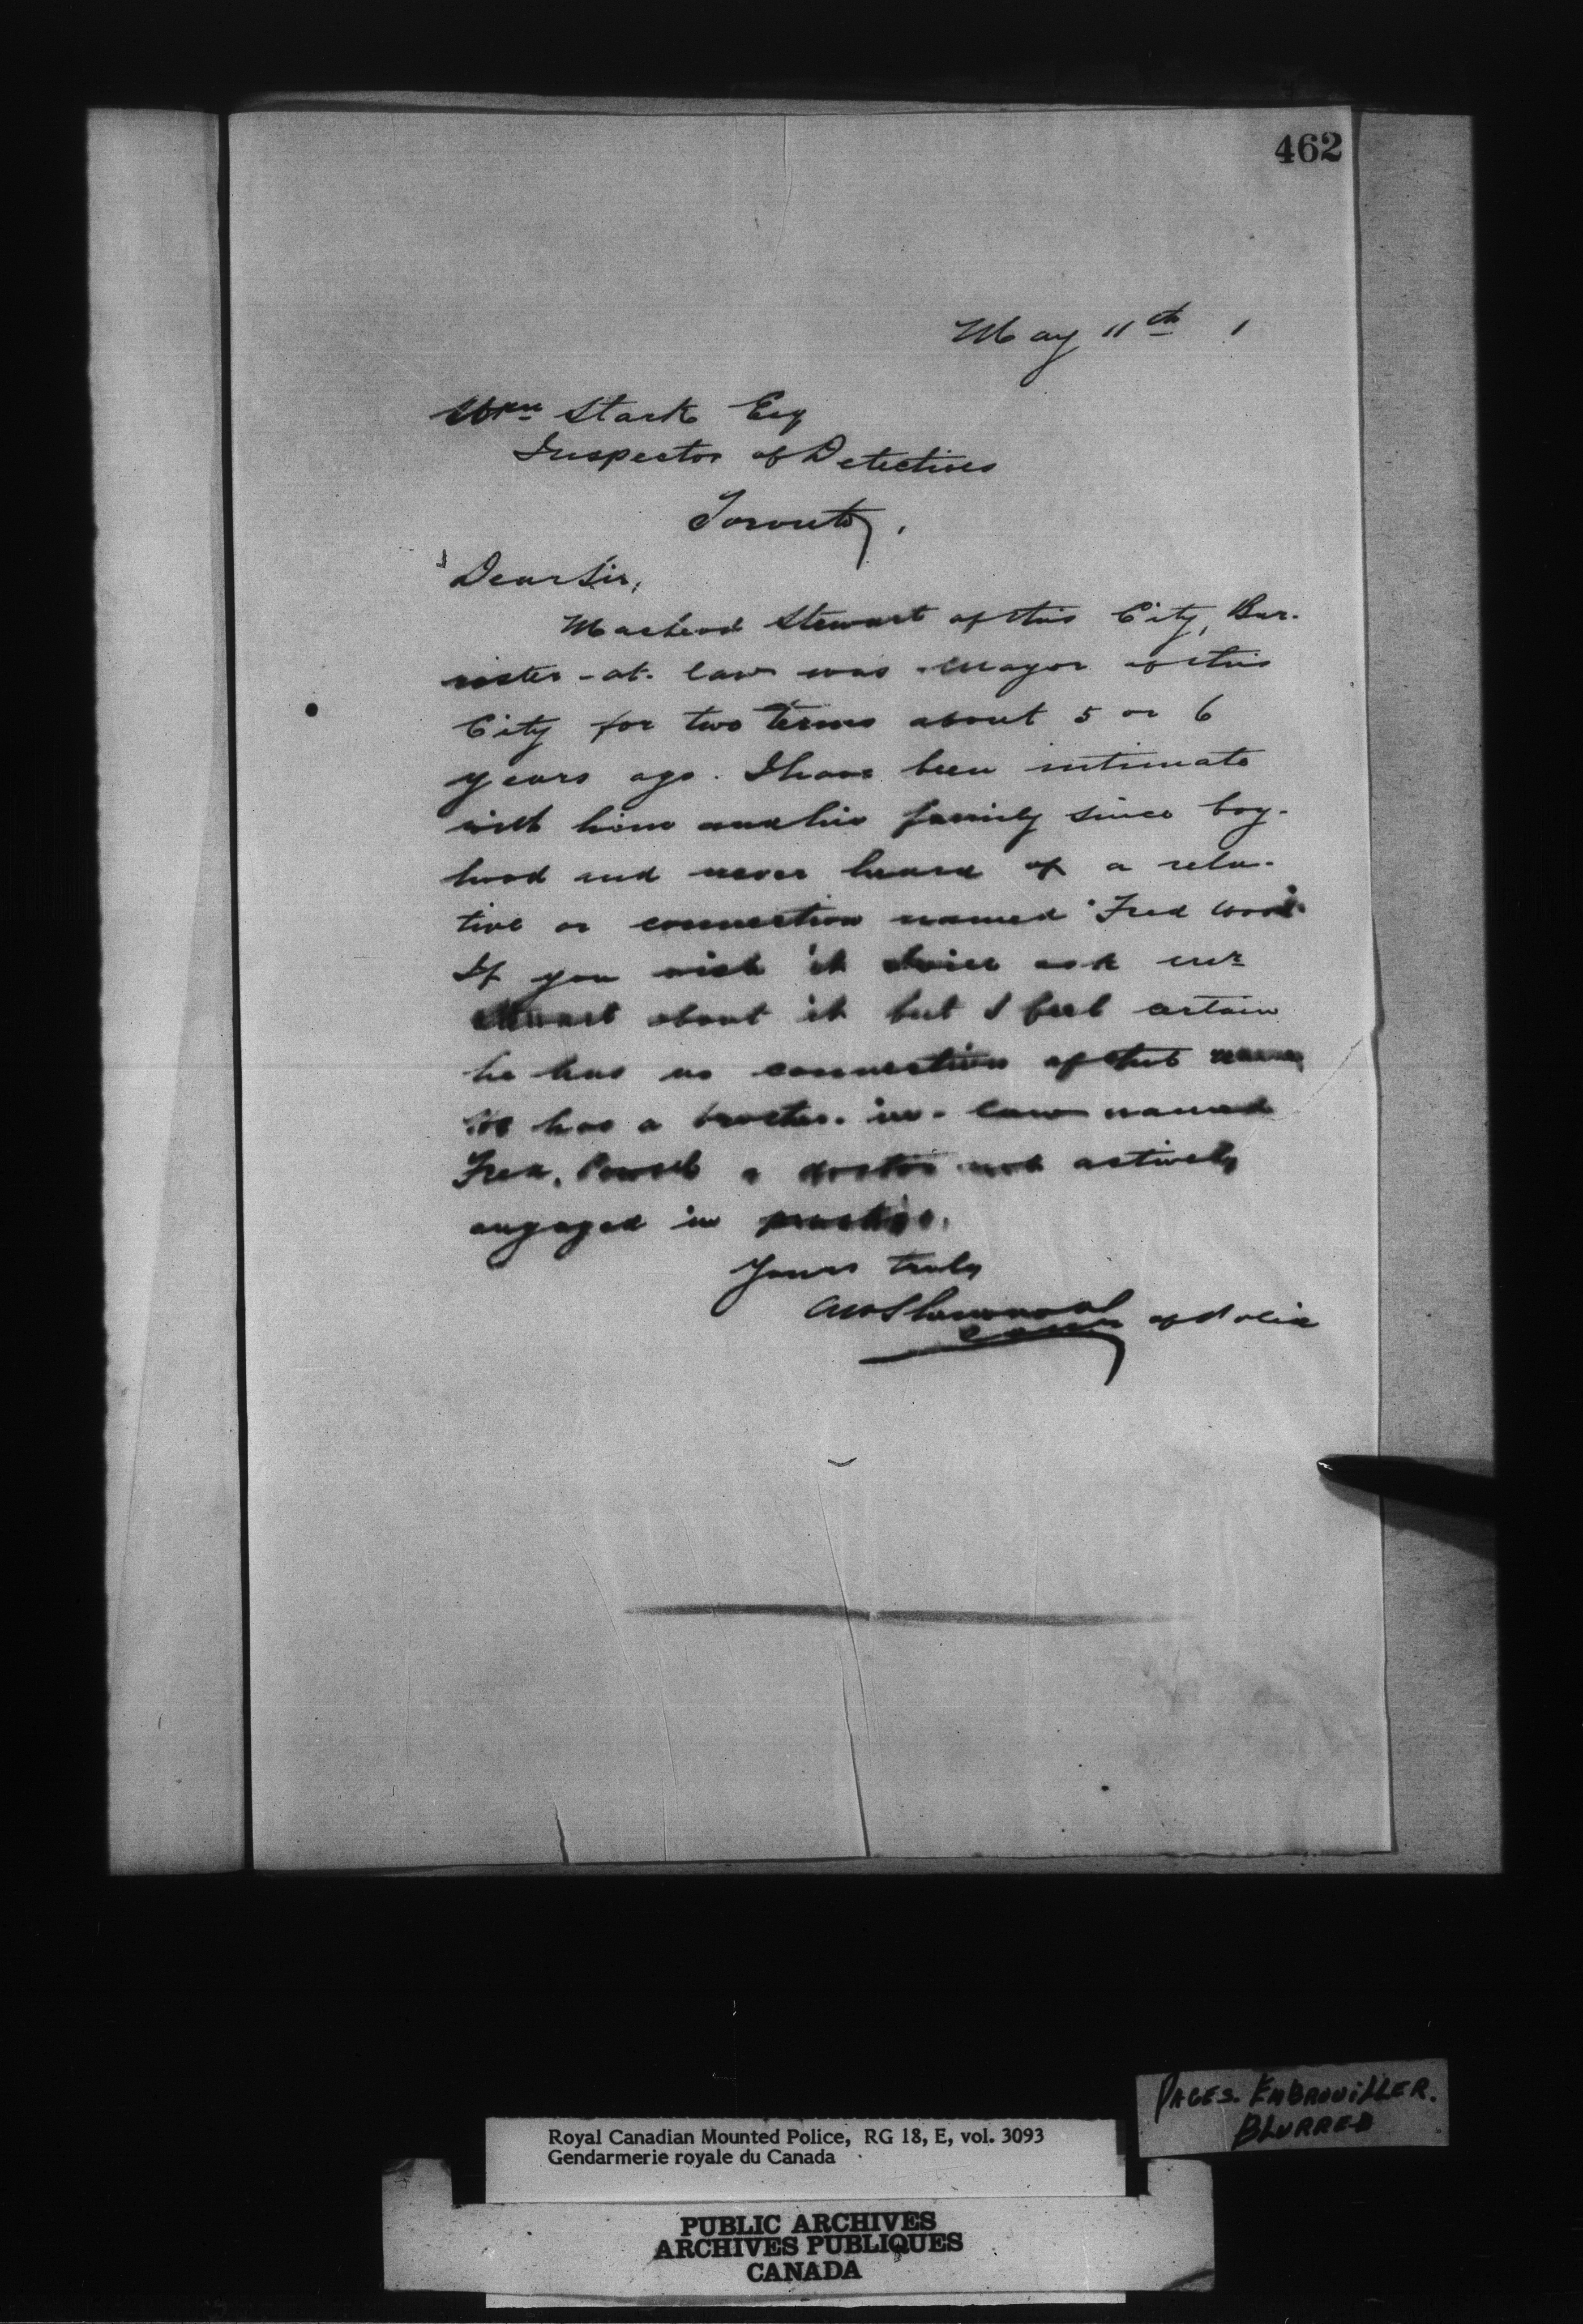 462
May 11th 1
Wm Stark Esq
Inspector of Detectives
Toronto.
Dear Sir,
Macleod Stewart of this City, Bar-
rister-at-law was Mayor of this
City for two terms about 5 or 6
years ago. I have been intimate
with him and his family since boy-
hood and never heard of a rela-
tive or connection named "Fred Wood".
If you wish it I will ask Mr
Stewart about it but I feel certain
he has no connection of that name
He has a brother-in-law named
Fred. Powell a doctor not actively
engaged in practice.
Yours truly
AWSherwood
Comr of Police
PAGES. EMBROUILLER.
BLURRED
Royal Canadian Mounted Police, RG 18, E, vol. 3093
Gendarmerie royale du Canada
PUBLIC ARCHIVES
ARCHIVES PUBLIQUES
CANADA